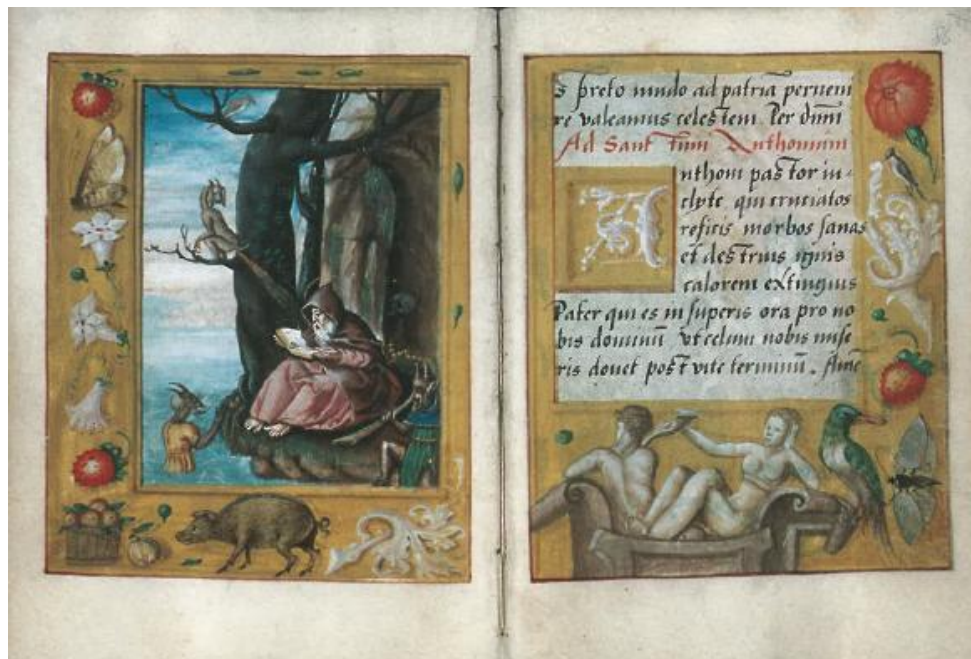 s spreto mundo ad patriā peruem
re valeamus celestem. Per dūm
Ad Sanctum Anthonium
Anthoni pastor in-
clyte qui cruciatos
reficis morbos sanas
et destruis ignis
calorem extinguis
Pater qui es in superis ora pro no
bis dominū vt celum nobis mise
ris donet post vite terminū. Amē